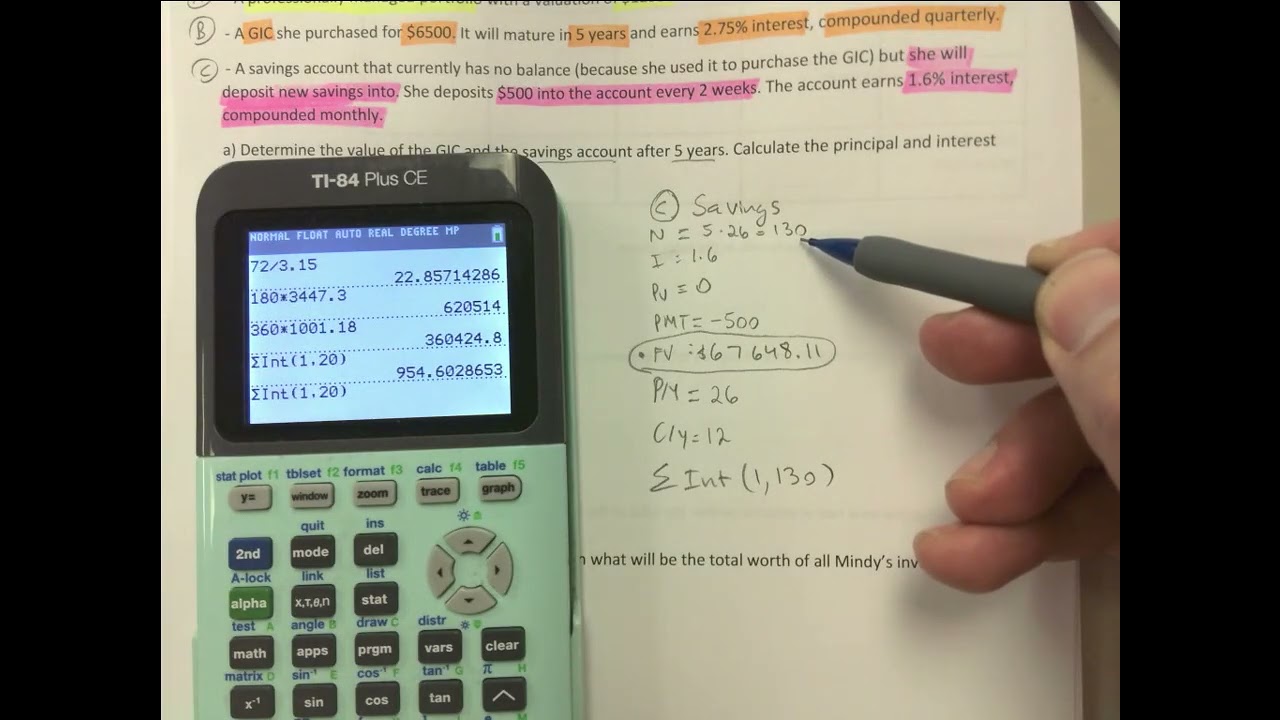 A professionally managed portfolio with a valuation of
B - A GIC she purchased for $6500. It will mature in 5 years and earns 2.75% interest, compounded quarterly.
C - A savings account that currently has no balance (because she used it to purchase the GIC) but she will
deposit new savings into. She deposits $500 into the account every 2 weeks. The account earns 1.6% interest,
compounded monthly.
a) Determine the value of the GIC and the savings account after 5 years. Calculate the principal and interest
TI-84 Plus CE
NORMAL FLOAT AUTO REAL DEGREE MP
72/3.15
22.85714286
180*3447.3
620514
360*1001.18
360424.8
ΣInt(1,20)
954.6028653
ΣInt(1,20)
C Savings
N = 5·26 = 130
I : 1.6
PV = 0
PMT = -500
• FV : $67648.11
P/Y = 26
C/y = 12
Σ Int (1, 130)
what will be the total worth of all Mindy's inv
stat plot f1 tblset f2 format f3 calc f4 table f5
y= window zoom trace graph
quit ins
2nd mode del
A-lock link list
alpha X,T,θ,n stat
test A angle B draw C distr
math apps prgm vars clear
matrix D sin⁻¹ E cos⁻¹ F tan⁻¹ G π H
x⁻¹ sin cos tan ^